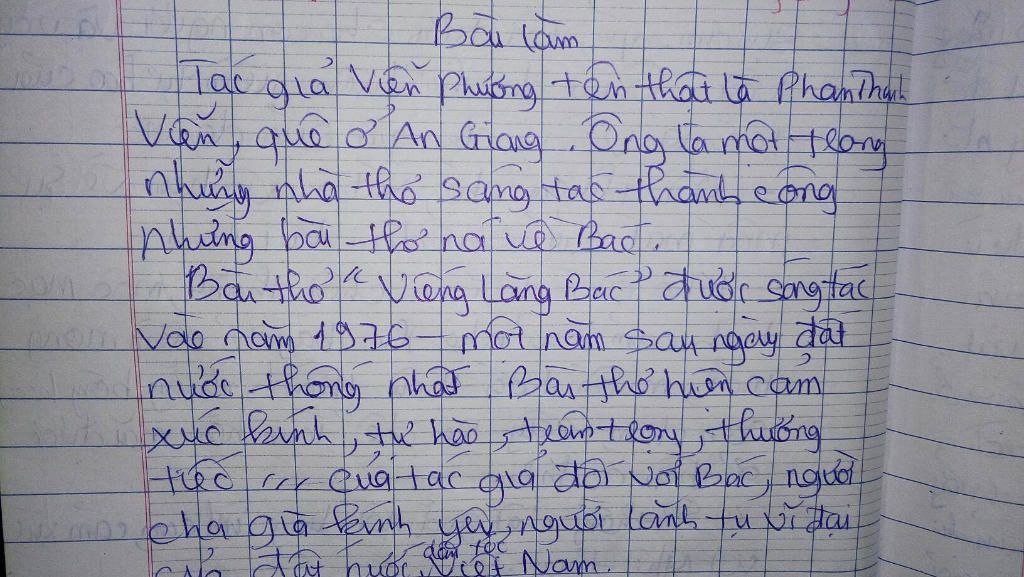 Bài làm
Tác giả Viễn Phương tên thật là Phan Thanh
Viễn, quê ở An Giang. Ông là một trong
những nhà thơ sáng tác thành công
những bài thơ nói về Bác.
Bài thơ "Viếng Lăng Bác" được sáng tác
vào năm 1976 - một năm sau ngày đất
nước thống nhất. Bài thơ hiện cảm
xúc kính, tự hào, trân trọng, thương
tiếc ... của tác giả đối với Bác, người
cha già kính yêu, người lãnh tụ vĩ đại
của đất nước, dân tộc Việt Nam.